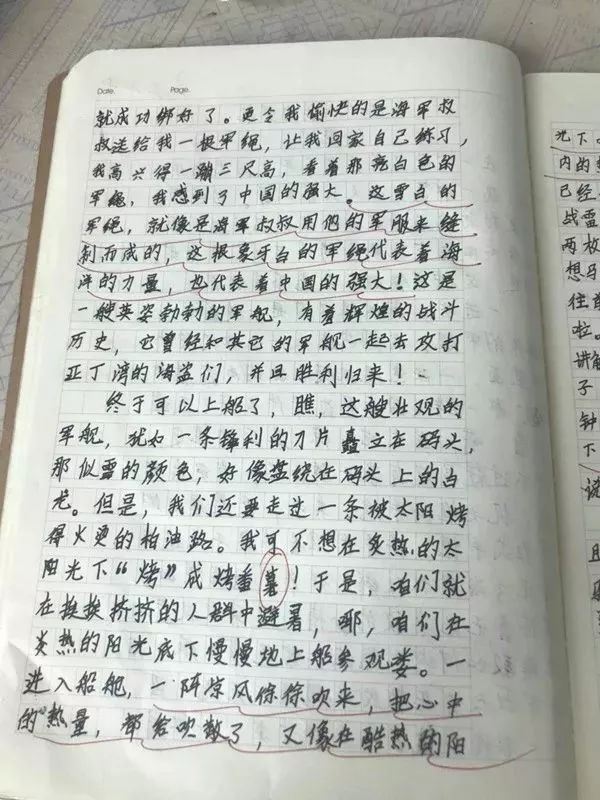 Date. Page.
就成功绑好了。更令我愉快的是海军叔
叔送给我一根军绳，让我回家自己练习，
我高兴得一蹦三尺高，看着那亮白色的
军绳，我感到了中国的强大。这雪白的
军绳，就像是海军叔叔用他的军服来缝
制而成的，这根象牙白的军绳代表着海
洋的力量，也代表着中国的强大！这是
一艘英姿勃勃的军舰，有着辉煌的战斗
历史，它曾经和其它的军舰一起去攻打
亚丁湾的海盗们，并且胜利归来！
终于可以上船了，瞧，这艘壮观的
军舰，犹如一条锋利的刀片矗立在码头，
那似雪的颜色，好像盘绕在码头上的白
龙。但是，我们还要走过一条被太阳烤
得火烫的柏油路。我可不想在炙热的太
阳光下“烤”成烤番薯！于是，咱们就
在挨挨挤挤的人群中避暑，耶，咱们在
炎热的阳光底下慢慢地上船参观娄。一
进入船舱，一阵凉风徐徐吹来，把心中
的热量，都给吹散了，又像在酷热的阳
光下
内的
已经
战雷
两枚
想马
往
啦。
讲解
子
钟
下